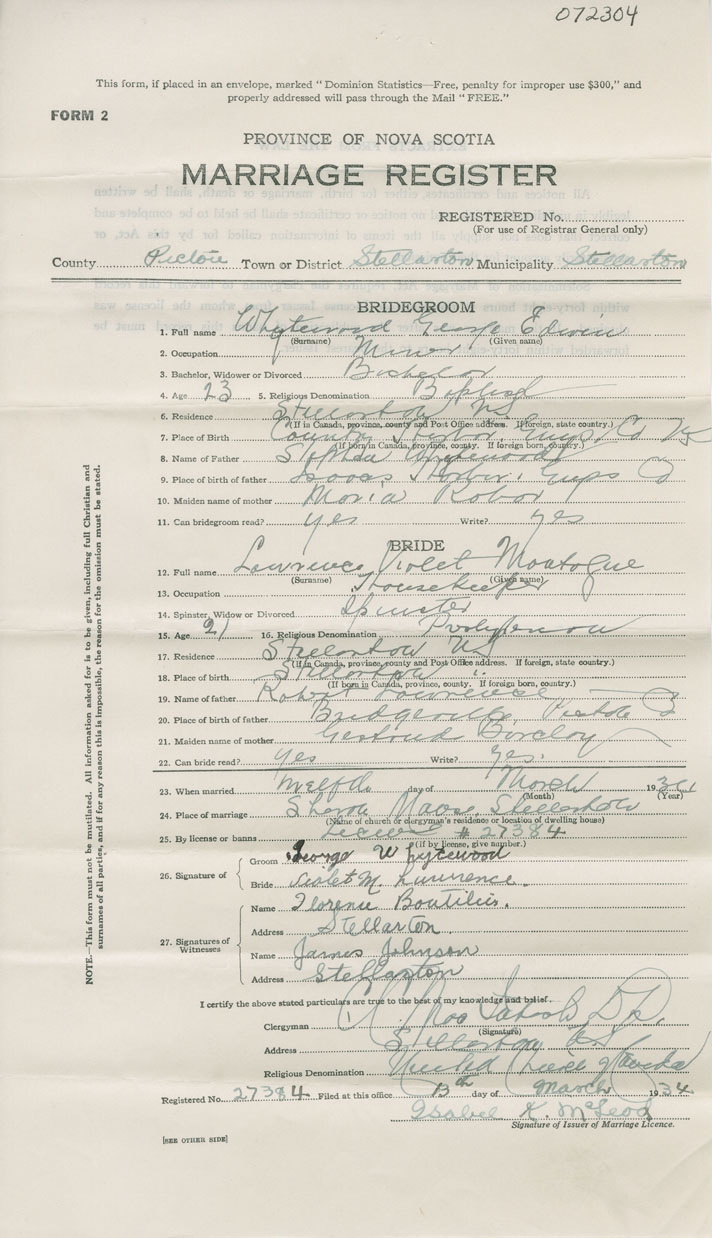 072304
This form, if placed in an envelope, marked "Dominion Statistics—Free, penalty for improper use $300," and
properly addressed will pass through the Mail "FREE."
FORM 2
PROVINCE OF NOVA SCOTIA
MARRIAGE REGISTER
REGISTERED No.
(For use of Registrar General only)
County Pictou Town or District Stellarton Municipality Stellarton
BRIDEGROOM
1. Full name Whytewood George Edwin
(Surname) (Given name)
2. Occupation Miner
3. Bachelor, Widower or Divorced Bachelor
4. Age 23 5. Religious Denomination Baptist
6. Residence Stellarton NS
(If is Canada, province, county and Post Office address. If foreign, state country.)
7. Place of Birth Country Harbor, Guys. Co NS
(If born in Canada, province, county. If foreign born, country.)
8. Name of Father Whytewood
9. Place of birth of father Isaacs Harbor, Guys
10. Maiden name of mother Maria
11. Can bridegroom read? yes Write? yes
BRIDE
12. Full name Lawrence Violet Montague
(Surname) (Given name)
13. Occupation Housekeeper
14. Spinster, Widow or Divorced Spinster
15. Age 21 16. Religious Denomination Presbyterian
17. Residence Stellarton NS
(If in Canada, province, county and Post Office address. If foreign, state country.)
18. Place of birth Stellarton "
(If born in Canada, province, county. If foreign born, country.)
19. Name of father Robert Lawrence
20. Place of birth of father Bridgeville, Pictou
21. Maiden name of mother Gertrude Barclay
22. Can bride read? Yes Write? Yes.
23. When married twelfth day of March 1934
(Month) (Year)
24. Place of marriage Sharon Manse, Stellarton
(Name of church or clergyman's residence or location of dwelling house)
25. By license or banns License # 27384
(if by license, give number.)
26. Signature of
Groom George Whytewood
Bride Violet M. Lawrence.
27. Signatures of Witnesses
Name Florence Boutilier.
Address Stellarton.
Name James Johnson
Address Stellarton
I certify the above stated particulars are true to the best of my knowledge and belief.
Clergyman
(Signature)
Address Stellarton NS
Religious Denomination United Canada
Registered No. 27384 Filed at this office 13th day of March 1934
Isabel K. McLeod
Signature of Issuer of Marriage Licence.
[SEE OTHER SIDE]
NOTE.—This form must not be mutilated. All information asked for is to be given, including full Christian and
surnames of all parties, and if for any reason this is impossible, the reason for the omission must be stated.